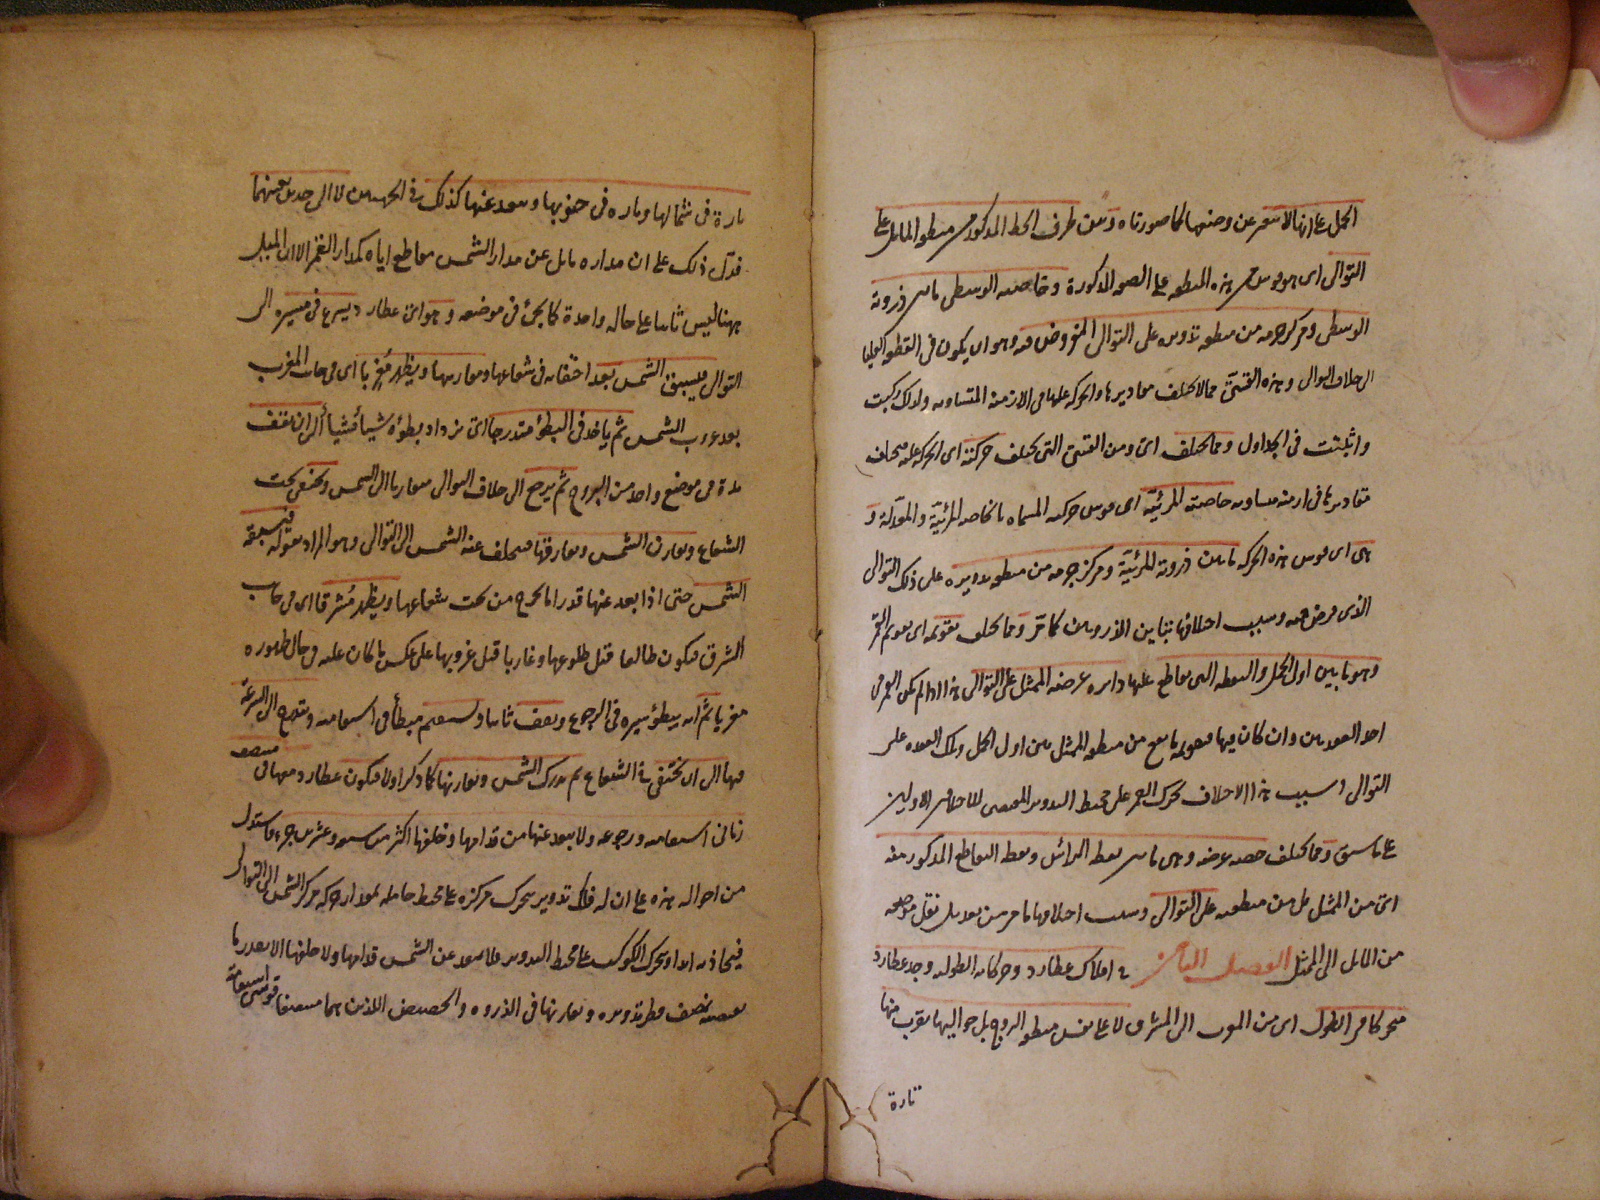 التوالى اى هو قوس من هذه المنطقة على الصورة المذكورة وخاصته الوسطى ما بين ذروته
الوسطى ومركز جرمه من منطقة تدويره على التوالى المفروض فيه وهو ان يكون فى القطعة العليا
الى خلاف التوالى وهذه القسى مما لا تختلف مقاديرها والحركة عليها فى الازمنة المتساوية ولذلك ركبت
واثبتت فى الجداول ومما يختلف اى ومن القسى التى تختلف حركته اى الحركة عليه يختلف
مقاديرها فى ازمنة متساوية خاصته المرئيّة اى قوس حركته المسماة بالخاصة المرئيّة والمعدّلة و
هى اى قوس هذه الحركة ما بين ذروته المرئيّة ومركز جرمه من منطقة تدويره على ذلك التوالى
الذى فرض فيه وسبب اختلافها تباين الذروتين كما مرّ ومما يختلف تقويمه اى تقويم القمر
وهو ما بين اول الحمل والنقطة التى يقاطع عليها دايرة عرضه الممثل على التوالى هذا اذا لم يكن القمر فى
احد العقدتين وان كان فيها فتقويمه ما يقع من منطقة الممثل بين اول الحمل وتلك العقدة على
التوالى وسبب هذا الاختلاف تحرك القمر على محيط التدوير المقتضى للاختلافين الاولين
على ما سبق ومما يختلف حصة عرضه وهى ما بين نقطة الرأس ونقطة التقاطع المذكور منه
اى من الممثل بل من منطقته على التوالى وسبب اختلافها ما مر من تعديل نقل موضعه
من المايل الى الممثل الفصل الثامن فى افلاك عطارد وحركاته الطولية وجد عطارد
متحركا فى الطول اى من المغرب الى المشرق لا على نفس منطقة البروج بل حواليها يقرب منها
تارة
تارة فى شمالها وتارة فى جنوبها ويبعد عنها كذلك فى الجهتين لا الى حد بعينهما
فدل ذلك على ان مداره مايل عن مدار الشمس مقاطع اياه كمدار القمر الا ان الميل
ههنا ليس ثابتا على حالة واحدة كما يجئ فى موضعه وهو اى عطارد يسرع فى مسيره الى
التوالى فيسبق الشمس بعد اختفائه فى شعاعها ومقارنتها ويظهر مُغربا اى فى جانب المغرب
بعد غروب الشمس ثم ياخذ فى البطؤ متدرجا اى يزداد بطؤه شيأ فشيأ الى ان يقف
مدة فى موضع واحد من البروج ثم يرجع الى خلاف التوالى متقاربا الى الشمس ويختفى تحت
الشعاع ويقارن الشمس ويفارقها فيتخلف عنه الشمس الى التوالى وهو المراد بقوله فيسبقه
الشمس حتى اذا بعد عنها قدرا ما يخرج من تحت شعاعها ويظهر مُشرقا اى فى جانب
الشرق فيكون طالعا قبل طلوعها وغاربا قبل غروبها على عكس ما كان عليه فى حال ظهوره
مغربا ثم انه يبطؤ سيره فى الرجوع ويقف ثانيا ويستقيم مبطأ فى استقامته ويتدرج الى السرعة
فيها الى ان يختفى فى الشعاع ثم يدرك الشمس ويقارنها كما ذكر اولا فيكون عطارد معها فى منتصف
زمانى استقامته ورجوعه ولا يبعد عنها من قدامها وخلفها اكثر من سبعة وعشرين جزءا فاستدل
من احواله هذه على ان له فلك تدوير يتحرك مركزه على محيط حامله بمقدار حركة مركز الشمس الى التوالى
فيحاذيه ابدا ويتحرك الكوكب على محيط التدوير فلا يبعد عن الشمس قدامها ولا خلفها الا بقدر ما
يقتضيه نصف قطر تدويره ويقارنها فى الذروة والحضيض اللذين هما منتصفا قوسى استقامة